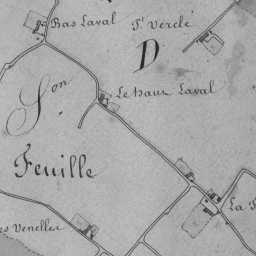 Bas Laval
Sᵗ Verclé
D
Le haut Laval
Son
Feuille
La
es Venelles